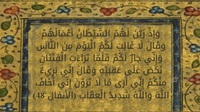 وَإِذْ زَيَّنَ لَهُمُ الشَّيْطَانُ أَعْمَالَهُمْ
وَقَالَ لَا غَالِبَ لَكُمُ الْيَوْمَ مِنَ النَّاسِ
وَإِنِّي جَارٌ لَكُمْ فَلَمَّا تَرَاءَتِ الْفِئَتَانِ
نَكَصَ عَلَى عَقِبَيْهِ وَقَالَ إِنِّي بَرِيءٌ
مِنْكُمْ إِنِّي أَرَى مَا لَا تَرَوْنَ إِنِّي أَخَافُ
اللَّهَ وَاللَّهُ شَدِيدُ الْعِقَابِ (الأنفال 48)